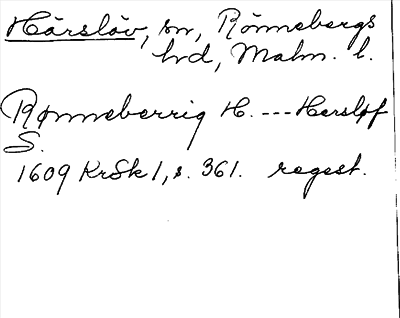 Härslöv, sn, Rönnebergs
hd, Malm. l.
Rønneberrig H. --- Hersløf
S.
1609 KrSk 1, s. 361. regest.